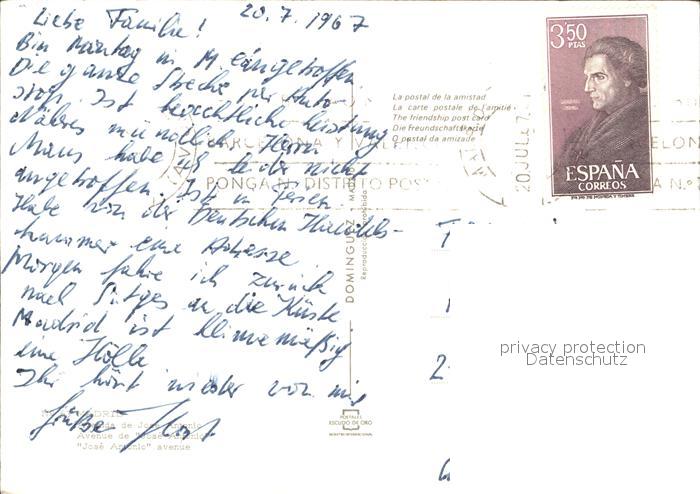 20.7.1967
Liebe Familie!
Bin Montag in M. eingetroffen
Die ganze Strecke per Auto-
stop. Ist beachtliche Leistung
Näheres mündlich. Herrn
Maus habe ich leider nicht
angetroffen. Ist in Ferien.
Habe von der Deutschen Handels-
kammer eine Adresse
Morgen fahre ich zurück
nach Sitges an die Küste
Madrid ist klimamäßig
eine Hölle
Ihr hört wieder von mir
Grüße Horst
La postal de la amistad
La carte postale de l'amitié
The friendship post card
Die Freundschaftskarte
O postal da amizade
BARCELONA Y
PONGA N. DISTRITO POSTAL
20 JUL
3'50 PTAS
ESPAÑA
CORREOS
DOMINGUEZ - MADRID
Reproducción prohibida
POSTALES
ESCUDO DE ORO
MADRID
de José Antonio
Avenue de "José Antonio"
"José Antonio" avenue
privacy protection
Datenschutz